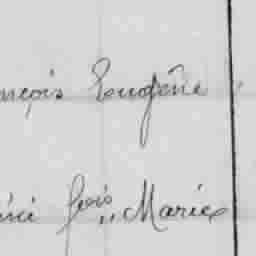 nçois Eugène
fois „ Marie